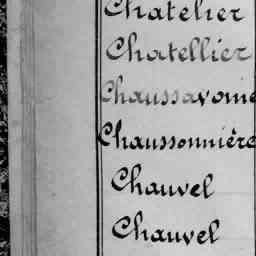 Chatelier
Chatellier
Chaussavoine
Chaussonnière
Chauvel
Chauvel